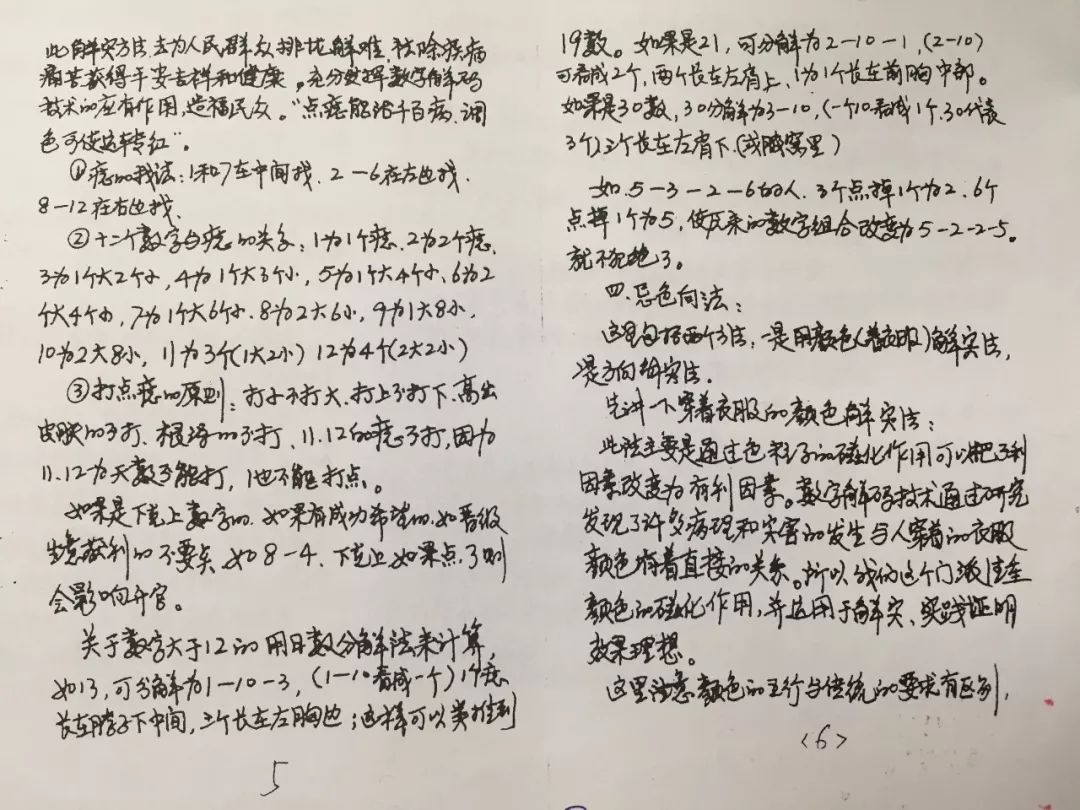 此解灾方法,去为人民群众排忧解难,祛除疾病
痛苦获得平安吉祥和健康。充分发挥数字解码
技术的应有作用,造福民众。“点痣能治千百病,调
色可使运转红”。
①痣的找法:1和7在中间找、2-6在左边找、
8-12在右边找、
②十二个数字与痣的关系:1为1个痣、2为2个痣、
3为1个大2个小,4为1个大3个小,5为1个大4个小、6为2
个大4个小,7为1个大6个小、8为2大6小,9为1大8小,
10为2大8小,11为3个(1大2小)12为4个(2大2小)
③打点痣的原则:打小不打大、打上不打下、高出
皮肤的不打、根深的不打、11、12的痣不打,因为
11、12为天数不能打,1也不能打点。
如果是下克上数字的,如果有成功希望的,如晋级
生意获利的不要点,如8-4、下克上如果点了则
会影响升官。
关于数字大于12的用日数分解法来计算,
如13,可分解为1-10-3,(1-10看成一个)1个痣
长在脖子下中间,三个长在左胸边;这样可以类推到
5
19数。如果是21,可分解为2-10-1,(2-10)
可看成2个,两个长在左肩上、1为1个长在前胸中部。
如果是30数,30分解为3-10,(一个10看成1个、30代表
3个)三个长在左肩下(或腋窝里)
如5-3-2-6的人、3个点掉1个为2、6个
点掉1个为5,使原来的数字组合改变为5-2-2-5。
就不犯 了。
四、忌色向法:
这里包括两个方法,一是用颜色(着衣服)解灾法,
是方向解灾法。
先讲一下穿着衣服的颜色解灾法:
此法主要是通过色粒子的磁化作用可以把不利
因素改变为有利因素。数字解码技术通过研究
发现了许多病理和灾害的发生与人穿着的衣服
颜色有着直接的关系。所以我们这个门派注重
颜色的磁化作用,并运用于解灾、实践证明
效果理想。
这里注意颜色的五行与传统的要求有区别,
<6>